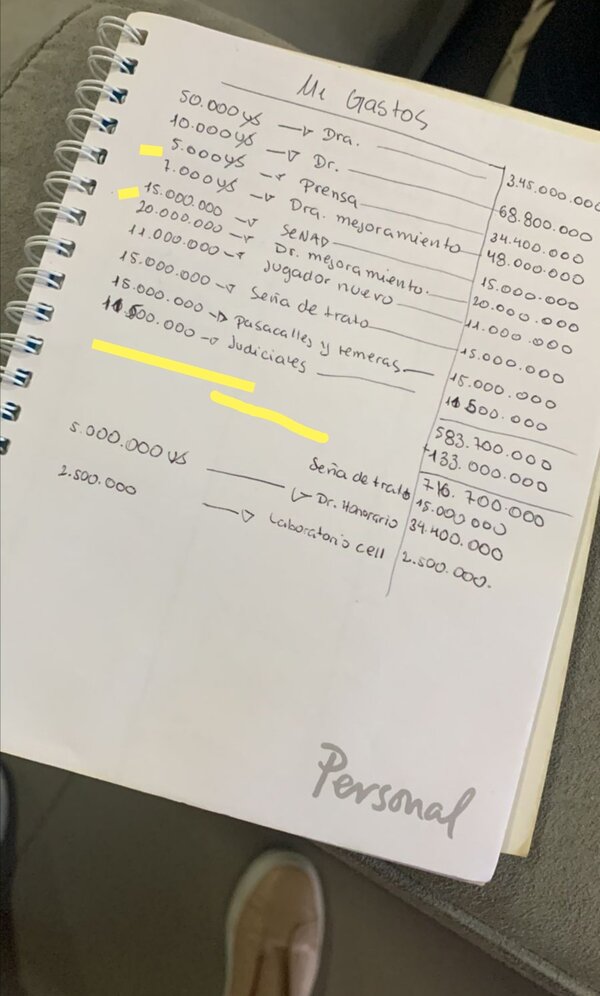 Mi Gastos
50.000 U$ → Dra. 345.000.000
10.000 U$ → Dr. 68.800.000
5.000 U$ → Prensa 34.400.000
7.000 U$ → Dra. mejoramiento 48.000.000
15.000.000 → SENAD 15.000.000
20.000.000 → Dr. mejoramiento. 20.000.000
11.000.000 → Jugador nuevo 11.000.000
15.000.000 → Seña de trato 15.000.000
15.000.000 → Pasacalles y remeras 15.000.000
500.000 → Judiciales 500.000
583.700.000
133.000.000
716.700.000
Seña de trato 15.000.000
5.000.000 U$ → Dr. Honorario 34.400.000
2.500.000 → Laboratorio cell 2.500.000.
Personal